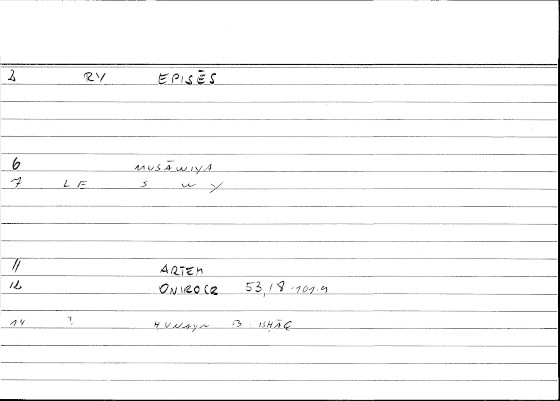 2 RY EPISĒS
6 MUSĀWIYA
7 LE S W Y
11 ARTEM
12 ONIROCR 53,18-101.4
14 ? HUNAYN B. ISḤĀQ